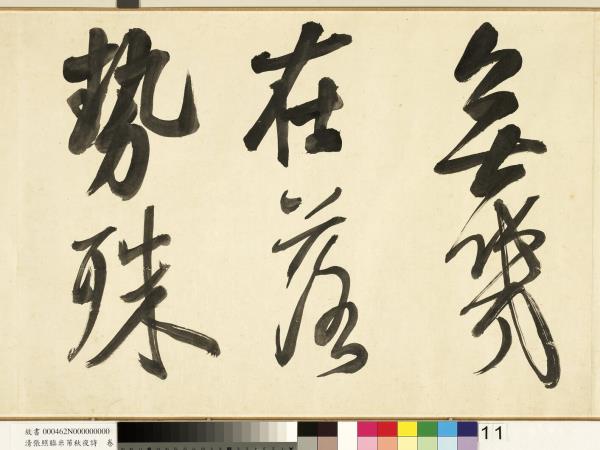 無幾
在落
勢殊
故書 000462N000000000
清張照臨米芾秋夜詩 卷
11